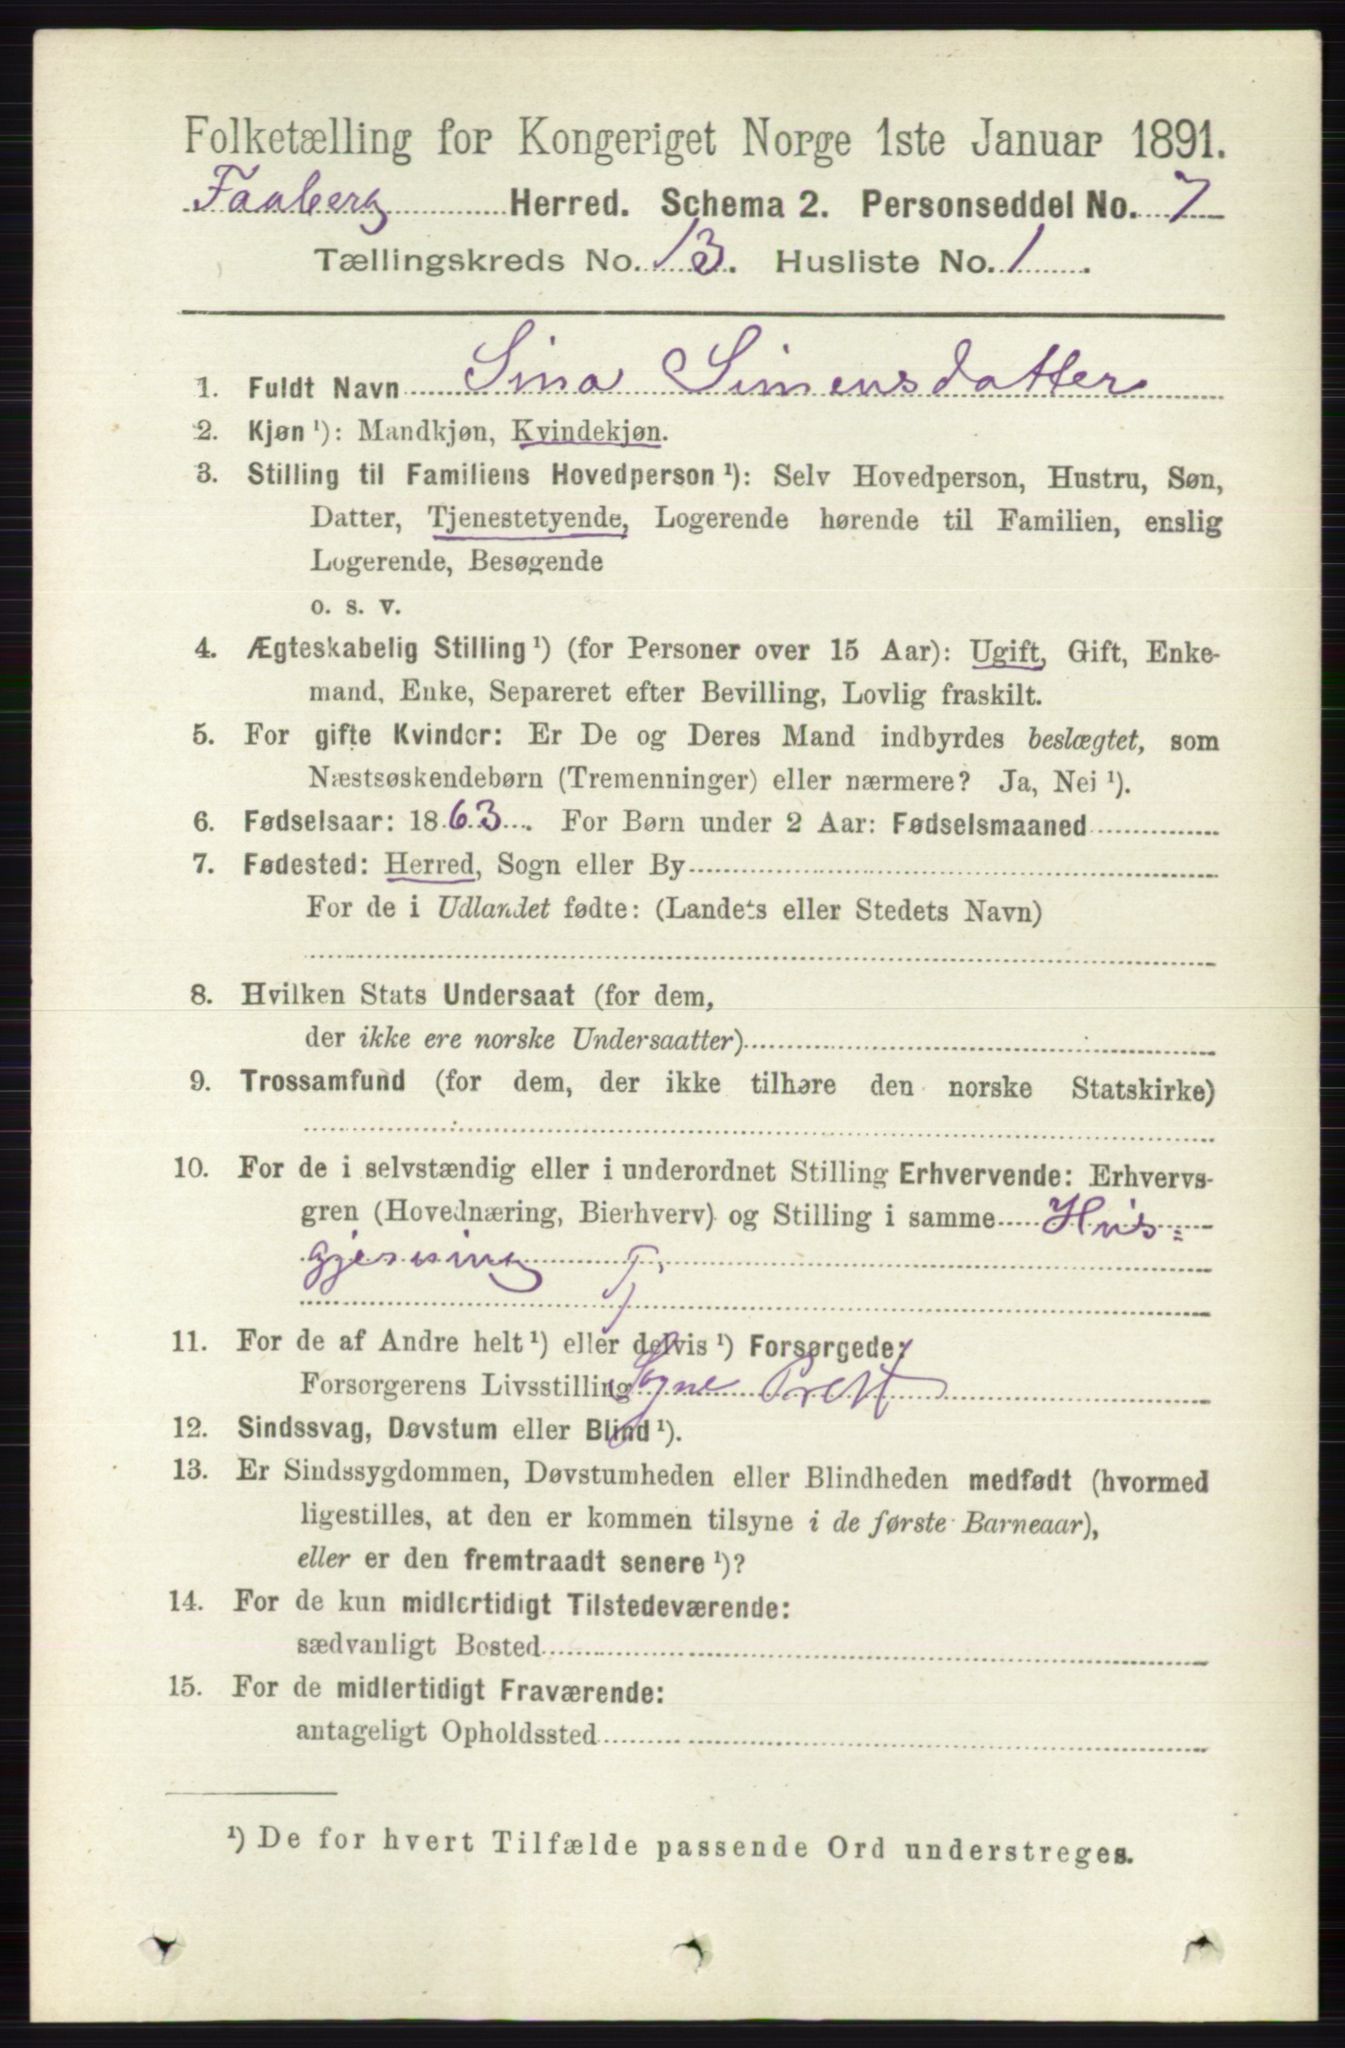 Folketælling for Kongeriget Norge 1ste Januar 1891.
Faaberg Herred. Schema 2. Personseddel No. 7
Tællingskreds No. 13. Husliste No. 1.
1. Fuldt Navn Sina Simensdatter
2. Kjøn ¹): Mandkjøn, Kvindekjøn.
3. Stilling til Familiens Hovedperson ¹): Selv Hovedperson, Hustru, Søn,
Datter, Tjenestetyende, Logerende hørende til Familien, enslig
Logerende, Besøgende
o. s. v.
4. Ægteskabelig Stilling ¹) (for Personer over 15 Aar): Ugift, Gift, Enke-
mand, Enke, Separeret efter Bevilling, Lovlig fraskilt.
5. For gifte Kvinder: Er De og Deres Mand indbyrdes beslægtet, som
Næstsøskendebørn (Tremenninger) eller nærmere? Ja, Nei ¹).
6. Fødselsaar: 1863. For Børn under 2 Aar: Fødselsmaaned
7. Fødested: Herred, Sogn eller By
For de i Udlandet fødte: (Landets eller Stedets Navn)
8. Hvilken Stats Undersaat (for dem,
der ikke ere norske Undersaatter)
9. Trossamfund (for dem, der ikke tilhøre den norske Statskirke)
10. For de i selvstændig eller i underordnet Stilling Erhvervende: Erhvervs-
gren (Hovednæring, Bierhverv) og Stilling i samme Hus=
gjerning T.
11. For de af Andre helt ¹) eller delvis ¹) Forsørgede:
Forsørgerens Livsstilling Sogne Prest
12. Sindssvag, Døvstum eller Blind ¹).
13. Er Sindssygdommen, Døvstumheden eller Blindheden medfødt (hvormed
ligestilles, at den er kommen tilsyne i de første Barneaar),
eller er den fremtraadt senere ¹)?
14. For de kun midlertidigt Tilstedeværende:
sædvanligt Bosted
15. For de midlertidigt Fraværende:
antageligt Opholdssted
¹) De for hvert Tilfælde passende Ord understreges.